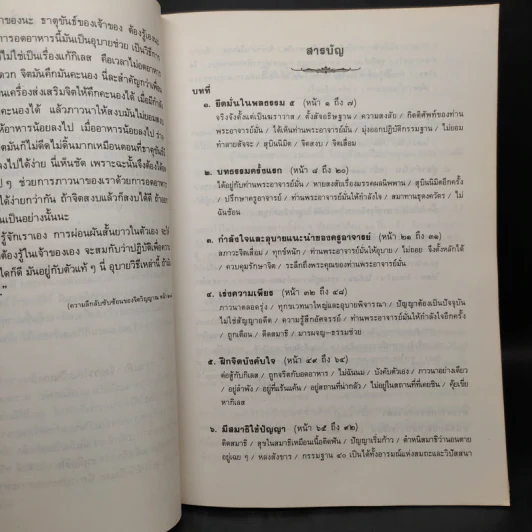 าของนะ ธาตุขันธ์ของเจ้าของ ต้องรู้เอง
การอดอาหารนี้มันเป็นอุบายช่วย เป็นวิธีการ
ไม่ใช่เป็นเรื่องแก้กิเลส คือเวลาไม่อดอาหาร
จิตมันคึกมันคะนอง นี่ละสำคัญกว่าเพื่อน
เครื่องส่งเสริมจิตให้คึกคะนองได้
คะนองได้ แล้วภาวนาให้สงบมันไม่ยอมสงบ
ให้อาหารน้อยลงไป เมื่ออาหารน้อยไป
มันก็ไม่คึกไม่ดีดไม่ดิ้นมากเหมือนตอนที่ธาตุขันธ์
ลงไปได้ง่าย นี่เห็นชัด เพราะฉะนั้นจึงต้องได้
ๆ ช่วยการภาวนาของเราด้วยการอดอาหาร
ได้ง่ายกว่ากัน ถ้าจิตสงบแล้วก็สงบได้ดี
เป็นอย่างนั้นนะ
รู้จักเราเอง การผ่อนผันสั้นยาวในตัวเอง
ต้องรู้ในเจ้าของเอง จะสมกับว่าปฏิบัติเพื่อ
ใดก็ดี มันอยู่กับตัวแท้ ๆ นี่ อุบายวิธีเหล่านี้
(ความลึกลับซับซ้อนของจิตวิญญาณ
สารบัญ
บทที่
๑. ยึดมั่นในพลธรรม ๕ (หน้า ๑ ถึง ๗)
จริงจังตั้งแต่เป็นฆราวาส / ตั้งสัจอธิษฐาน / ความสงสัย / กิตติศัพท์ของท่าน
พระอาจารย์มั่น / ได้เห็นท่านพระอาจารย์มั่น / มุ่งออกปฏิบัติกรรมฐาน / ไม่ยอม
ทำลายสัจจะ / สุบินนิมิต / จิตสงบ / จิตเสื่อม
๒. บทธรรมครั้งแรก (หน้า ๘ ถึง ๒๐)
ได้อยู่กับท่านพระอาจารย์มั่น / หายสงสัยเรื่องมรรคผลนิพพาน / สุบินนิมิตอีกครั้ง
/ ปรึกษาครูอาจารย์ / ท่านพระอาจารย์มั่นให้กำลังใจ / สมาทานธุดงควัตร / ไม่
ฉันช้อน
๓. กำลังใจและอุบายแนะนำของครูอาจารย์ (หน้า ๒๑ ถึง ๓๑)
สภาวะจิตเสื่อม / ทุกข์หนัก / ท่านพระอาจารย์มั่นให้อุบาย / ไม่ถอย จึงตั้งหลักได้
/ ควบคุมรักษาจิต / ระลึกถึงพระคุณของท่านพระอาจารย์มั่น
๔. เร่งความเพียร (หน้า ๓๒ ถึง ๔๘)
ภาวนาตลอดรุ่ง / ทุกขเวทนาใหญ่และอุบายพิจารณา / ปัญญาต้องเป็นปัจจุบัน
ไม่ใช่สัญญาอดีต / ความรู้สึกอัศจรรย์ / ท่านพระอาจารย์มั่นให้กำลังใจอีกครั้ง
/ ถูกเตือน / ติดสมาธิ / มารผจญ-ธรรมช่วย
๕. ฝึกจิตบังคับใจ (หน้า ๔๙ ถึง ๖๔)
ต่อสู้กับกิเลส / ถูกจริตกับอดอาหาร / ไม่ฉันนม / บังคับตัวเอง / ภาวนาอย่างเดียว
/ อยู่ลำพัง / อยู่ที่แร้นแค้น / อยู่สถานที่น่ากลัว / ไม่อยู่ในสถานที่ที่เคยชิน / คุ้ยเขี่ย
หากิเลส
๖. มีสมาธิใช้ปัญญา (หน้า ๖๕ ถึง ๙๒)
ติดสมาธิ / สุขในสมาธิเหมือนเนื้อติดฟัน / ปัญญาเริ่มก้าว / ตำหนิสมาธิว่านอนตาย
อยู่เฉย ๆ / หลงสังขาร / กรรมฐาน ๔๐ เป็นได้ทั้งอารมณ์แห่งสมถะและวิปัสสนา